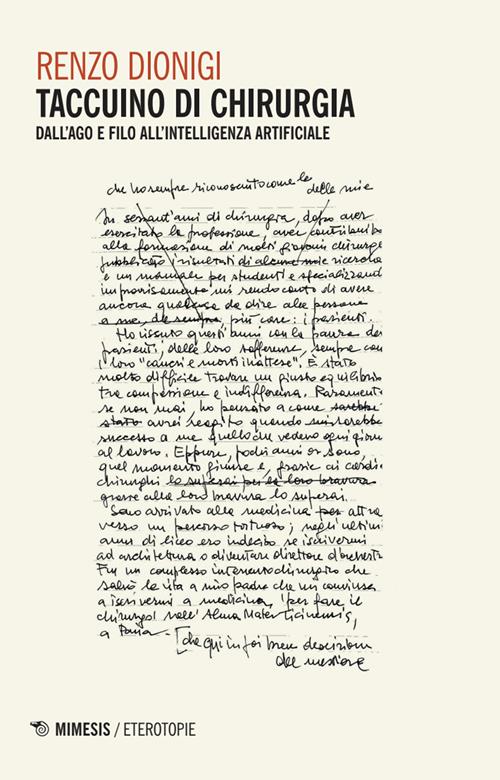 RENZO DIONIGI
TACCUINO DI CHIRURGIA
DALL'AGO E FILO ALL'INTELLIGENZA ARTIFICIALE
che ho sempre riconosciuto come le delle mie
In sessant'anni di chirurgia, dopo aver
esercitato la professione, aver contribuito
alla formazione di molti giovani chirurghi
pubblicato i risultati di alcune mie ricerche
e un manuale per studenti e specializzandi
improvisamente mi rendo conto di avere
ancora qualcosa da dire alle persone
a me, da sempre, più care: i pazienti.
Ho vissuto questi anni con la paura dei
pazienti, delle loro sofferenze, sempre con
i loro "cancri e morti inattese". È stato
molto difficile trovare un giusto equilibrio
tra compassione e indifferenza. Raramente
se non mai, ho pensato a come sarebbe
stato avrei reagito quando mi sarebbe
successo a me quello che vedevo ogni giorno
al lavoro. Eppure, pochi anni or sono,
quel momento giunse e, grazie ai cardio
chirurghi lo superai per la loro bravura
grazie alla loro bravura lo superai.
Sono arrivato alla medicina per attra
verso un percorso tortuoso; negli ultimi
anni di liceo ero indeciso se iscrivermi
ad architettura o diventare direttore d'orchestra
Fu un complesso intervento chirurgico che
salvò la vita a mio padre che mi convinse
a iscrivermi a medicina, "per fare il
chirurgo" nell'Alma Mater Ticinensis,
a Pavia. [che qui in poi
del mestiere
MIMESIS / ETEROTOPIE